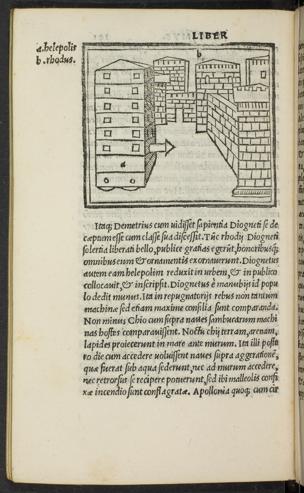 LIBER
a. helepolis
b. rhodus.
b
a
Itaq; Demetrius cum uidisset sapientia Diogneti se de
ceptum esse cum classe sua discessit. Tūc rhodij Diogneti
solertia liberati bello, publice gratias egerūt, honoribusq;
omnibus eum & ornamentis exornauerunt. Diognetus
autem eam helepolim reduxit in urbem, & in publico
collocauit, & inscripsit. Diognetus è manubijs id popu
lo dedit munus. Ita in repugnatorijs rebus non tantum
machinæ sed etiam maxime consilia sunt comparanda.
Non minus Chio cum supra naues sambucarum machi
nas hostes comparauissent. Noctu chij terram, arenam,
lapides proiecerunt in mare ante murum. Ita illi poste
ro die cum accedere uoluissent naues supra aggerationē,
quæ fuerat sub aqua sederunt, nec ad murum accedere,
nec retrorsus se recipere potuerunt, sed ibi malleolis confi
xæ incendio sunt conflagratæ. Apollonia quoq; cum cir